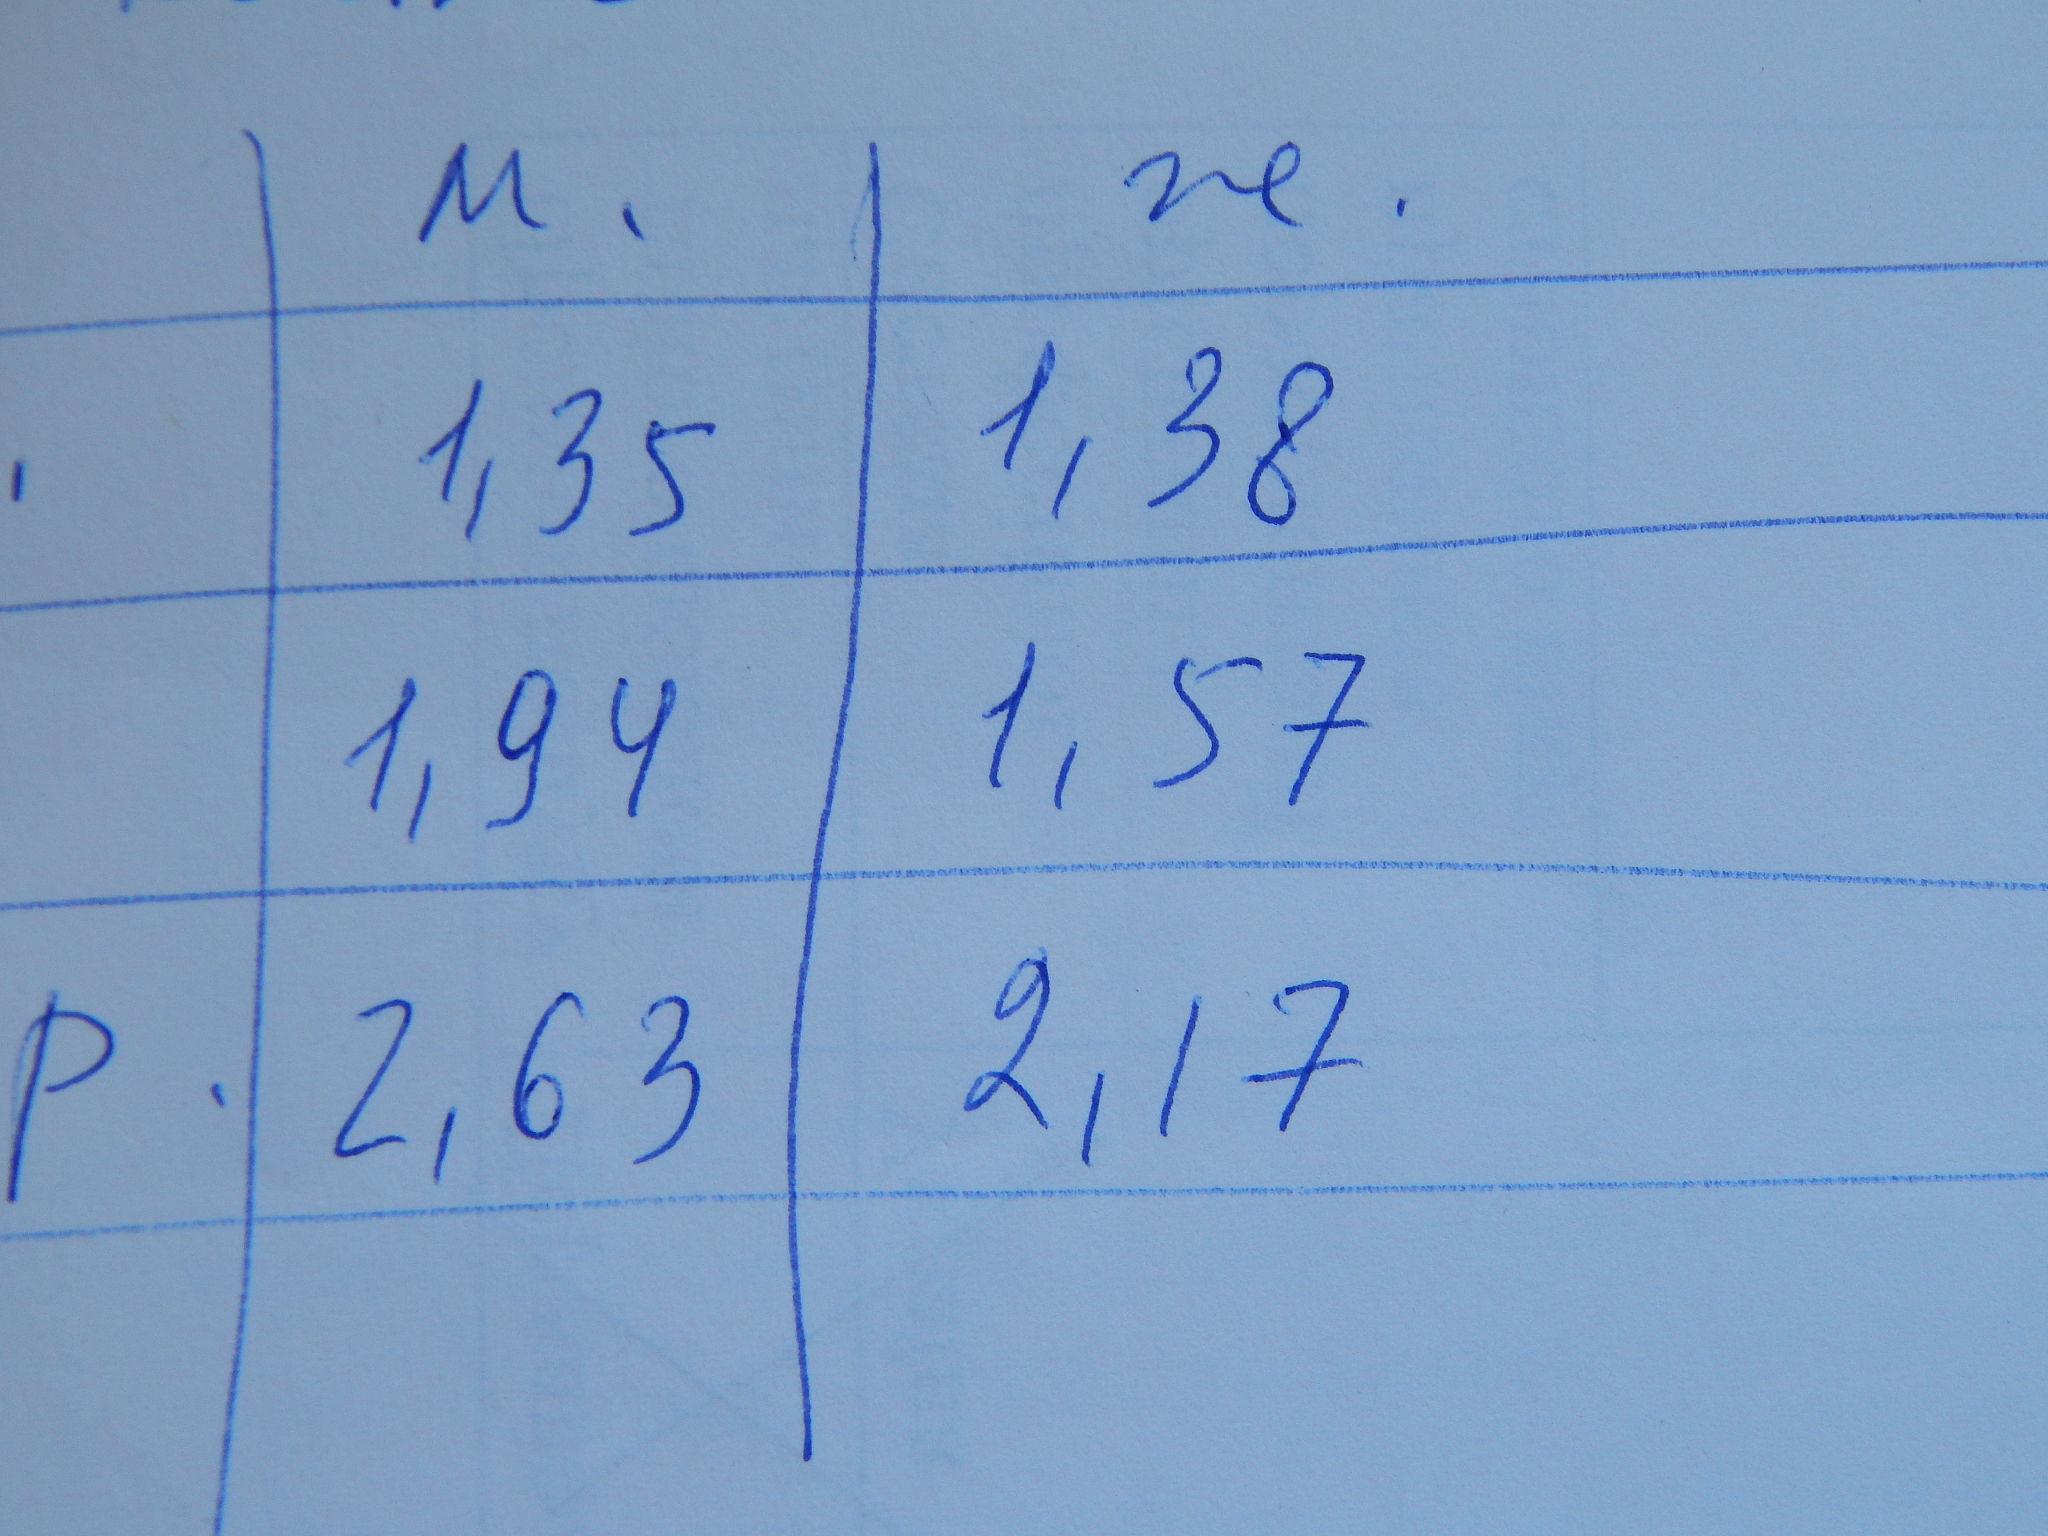 м. же.
1,35 1,38
1,94 1,57
р. 2,63 2,17